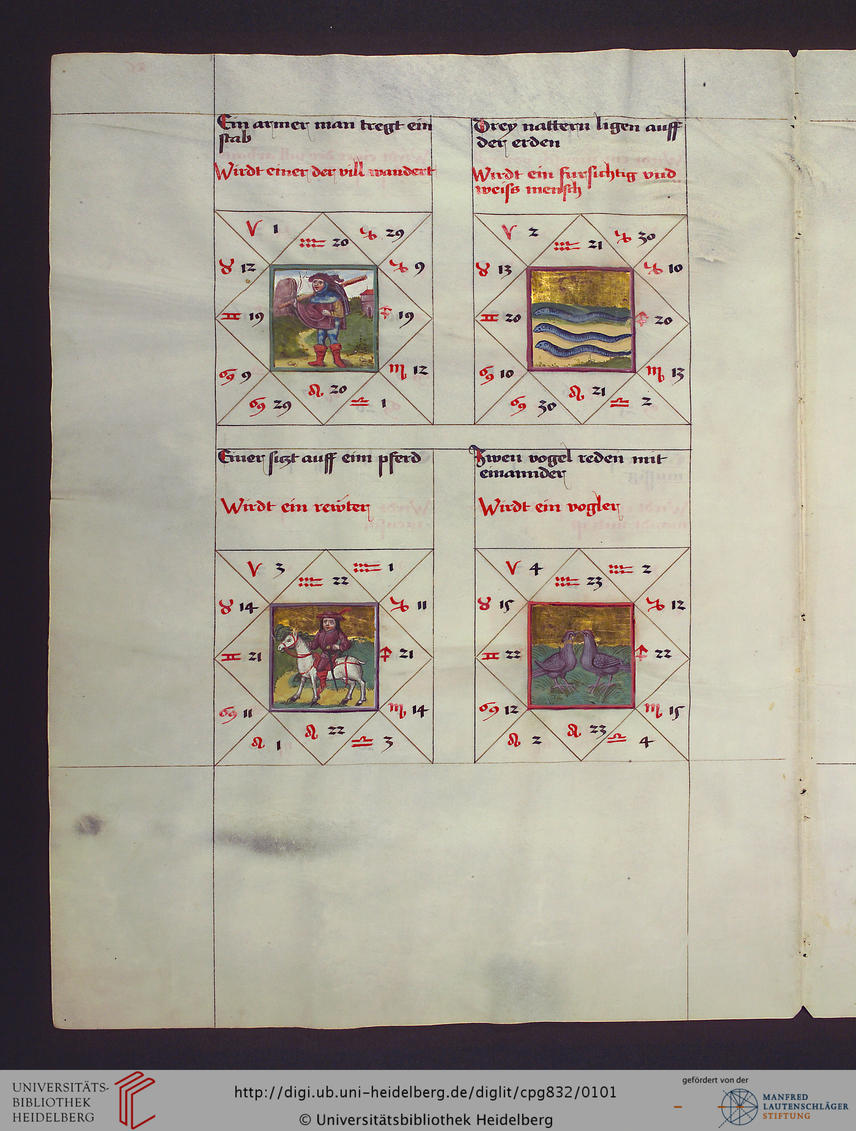 Ein armer man tregt ein
stab
Wirdt einer der vill wandert
♈ 1
♒ 20
♑ 29
♉ 12
♑ 9
♊ 19
♐ 19
♋ 9
♏ 12
♋ 29
♌ 20
♎ 1
Drey nattern ligen auff
der erden
Wirdt ein fursichtig vnd
weiss mensch
♈ 2
♒ 21
♑ 30
♉ 13
♑ 10
♊ 20
♐ 20
♋ 10
♏ 13
♋ 30
♌ 21
♎ 2
Einer sizt auff eim pferd
Wirdt ein rewter
♈ 3
♒ 22
♒ 1
♉ 14
♑ 11
♊ 21
♐ 21
♋ 11
♏ 14
♌ 1
♌ 22
♎ 3
Zwen vogel reden mit
einannder
Wirdt ein vogler
♈ 4
♒ 23
♒ 2
♉ 15
♑ 12
♊ 22
♐ 22
♋ 12
♏ 15
♌ 2
♌ 23
♎ 4
UNIVERSITÄTS-
BIBLIOTHEK
HEIDELBERG
http://digi.ub.uni-heidelberg.de/diglit/cpg832/0101
© Universitätsbibliothek Heidelberg
gefördert von der
MANFRED
LAUTENSCHLÄGER
STIFTUNG